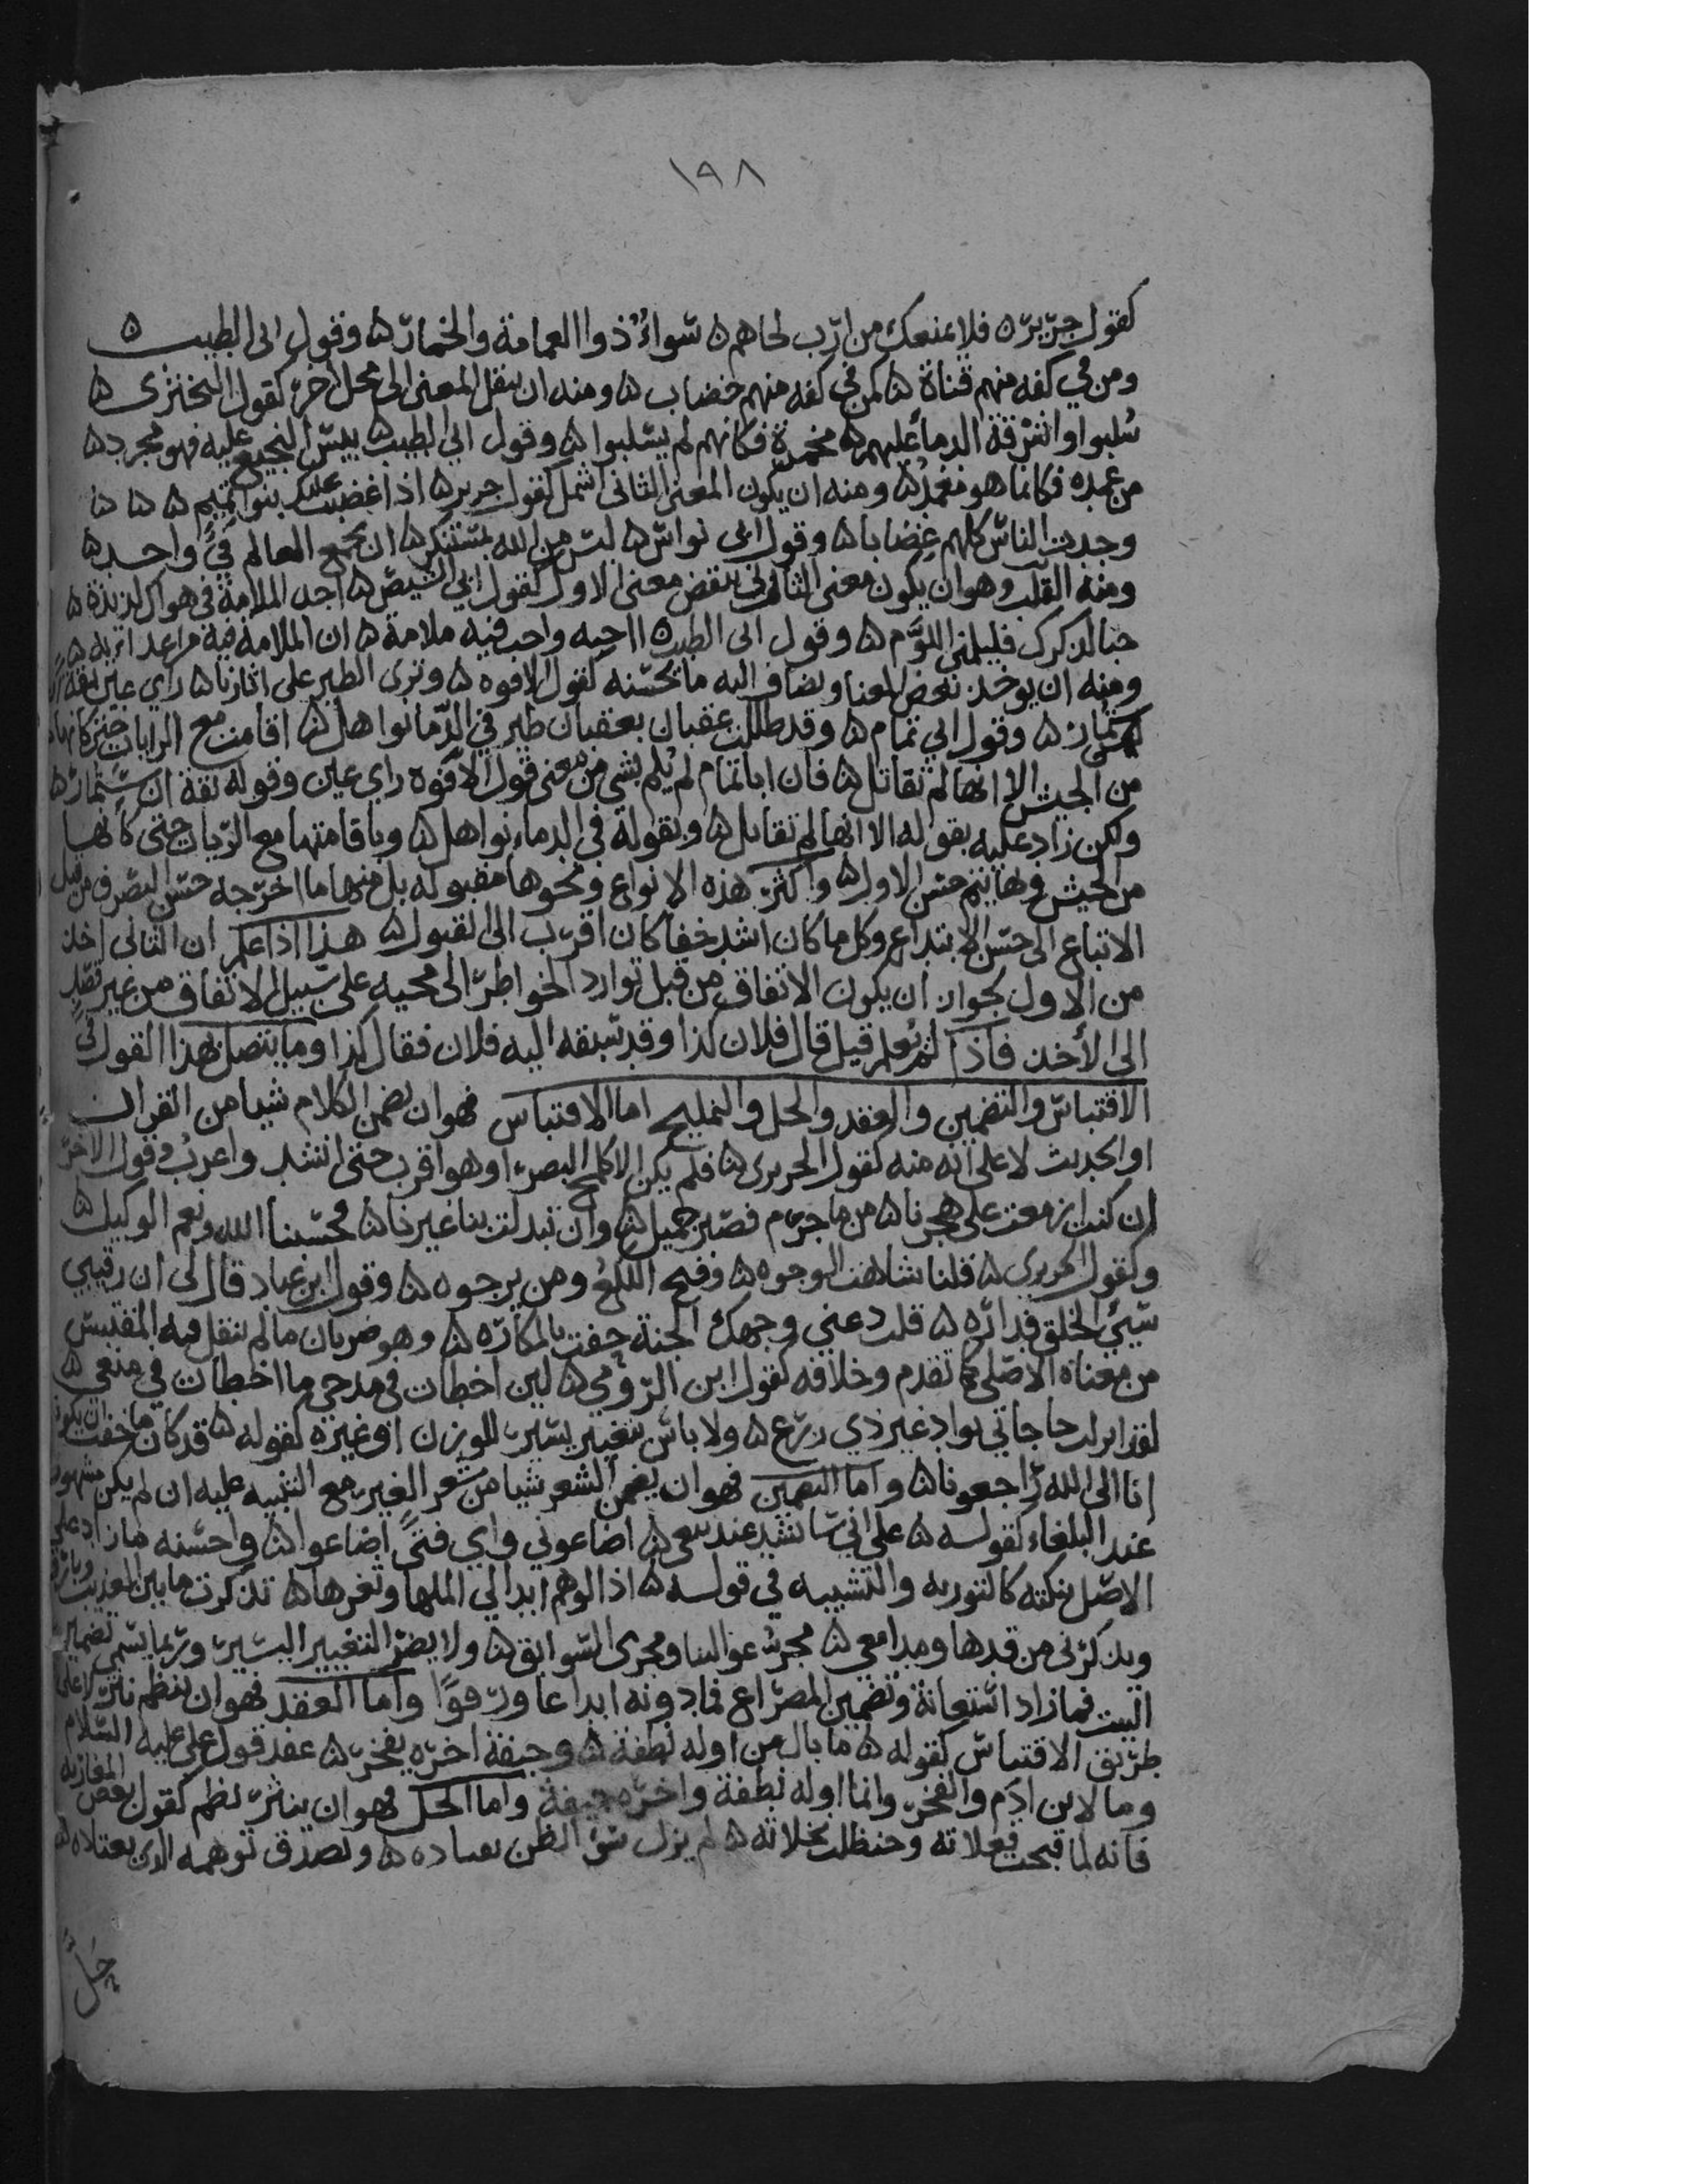 ١٩٨
كقول جرير ه فلا يمنعك من ارب لحاهم ه سواء ذوا العمامة والخمار ه وقول ابى الطيب ه
ومن في كفه منهم قناة ه كمن في كفه منهم خضاب ه ومنه ان ينقل المعنى الى محل اخر كقول البختري ه
سلبوا واشرقة الدما عليهم ه محمرة فكانهم لم يسلبوا ه وقول ابي الطيب ه يبس النجيع عليه فهو مجرد ه
من غمده فكانما هو مغمد ه ومنه ان يكون المعنى الثانى اشمل كقول جرير ه اذا غضبت عليك بنوا تميم ه ه ه
وجدت الناس كلهم غضابا ه وقول ابى نواس ه ليس من الله بمستنكر ه ان يجمع العالم في واحد ه
ومنه القلب وهو ان يكون معنى الثانى نقض معنى الاول كقول ابي الشيص ه اجد الملامة في هواك لذيذة ه
حبا لذكرك فليلمنى اللوّم ه وقول ابى الطيب ه ااحبه واحب فيه ملامة ه ان الملامة فيه من اعدائه ه
ومنه ان يوخذ بعض المعنا ويضاف اليه ما يحسنه كقول الافوه ه وترى الطير على اثارنا ه راي عين ثقة ان
ستمار ه وقول ابي تمام ه وقد ظللت عقبان بعقبان طير في الدما نواهل ه اقامت مع الرايات حتى كانها
من الجيش الا انها لم تقاتل ه فان ابا تمام لم يلم بشي من معنى قول الافوه راي عين وقوله ثقة ان ستمار ه
ولكن زاد عليه بقوله الا انها لم تقاتل ه وبقوله في الدماء نواهل ه وباقامتها مع الريات حتى كانها
من الجيش وبها يتم حسن الاول ه واكثر هذه الانواع ونحوها مقبوله بل منها ما اخرجه حسن التصرف من قبيل
الاتباع الى حسن الابتداع وكل ما كان اشد خفا كان اقرب الى القبول ه هذا اذا علم ان الثانى اخذ
من الاول لجواز ان يكون الاتفاق من قبل توارد الخواطر الى محيه على سبيل الاتفاق من غير قصد
الى الأخذ فاذا لم يعلم قيل قال فلان كذا وقد سبقه اليه فلان فقال كذا ومما يتصل بهذا القول في
الاقتباس والتضمين والعقد والحل والتمليح اما الاقتباس فهو ان يضمن الكلام شيا من القران
او الحديث لا على انه منه كقول الحريرى ه فلم يكن الا كلمح البصر او هو اقرب حتى انشد واعرب وقول الاخر
ان كنت ازمعت على هجرنا ه من ما جرم فصبر جميل ه وان تبدلت بنا غيرنا ه فحسبنا الله ونعم الوكيل ه
وكقول الحريري ه قلنا شاهت الوجوه ه وقبح اللكع ومن يرجوه ه وقول ابن عباد قال لى ان رقيبي
سيئ الخلق فداره ه قلت دعني وجهك الجنة حفت بالمكاره ه وهو ضربان ما لم ينقل فيه المقتبس
من معناه الاصلى كما تقدم وخلافه كقول ابن الرومي ه لين اخطات في مدحي ما اخطات في منعى ه
لقد انزلت حاجاتي بواد غير ذي زرع ه ولا باس بتغيير يسير للوزن او غيره كقوله ه قد كان ما خفت ان يكونا
إنا الى الله راجعونا ه واما التضمين فهو ان يضمن الشعر شيا من شعر الغير مع التنبيه عليه ان لم يكن مشهورا
عند البلغاء كقوله ه على اني سانشد عند بيعى ه اضاعوني واي فتى اضاعوا ه واحسنه ما زاد على
الاصل بنكته كالتوريه والتشبيه في قوله ه اذا الوهم ابدا لي الماها وثغرها ه تذكرت ما بين العذيب وبارق
ويذكرنى من قدها ومدامعي ه مجر عوالينا ومجرى السوابق ه ولا يضر التغيير اليسير وربما يسمى تضمين
البيت فما زاد استعانة وتضمين المصراع فما دونه ابداعا ورفوا واما العقد فهو ان ينظم نثر لا على
طريق الاقتباس كقوله ه ما بال من اوله نطفة ه وجيفة اخره يفخر ه عقد قول على عليه السلام
وما لابن ادم والفخر وانما اوله نطفة واخره جيفة واما الحل فهو ان ينثر نظم كقول بعض المغاربه
فانه لما قبحت فعلاته وحنظلت نخلاته ه لم يزل سوء الظن يعتاده ه ويصدق توهمه الذي يعتاده ه
حل